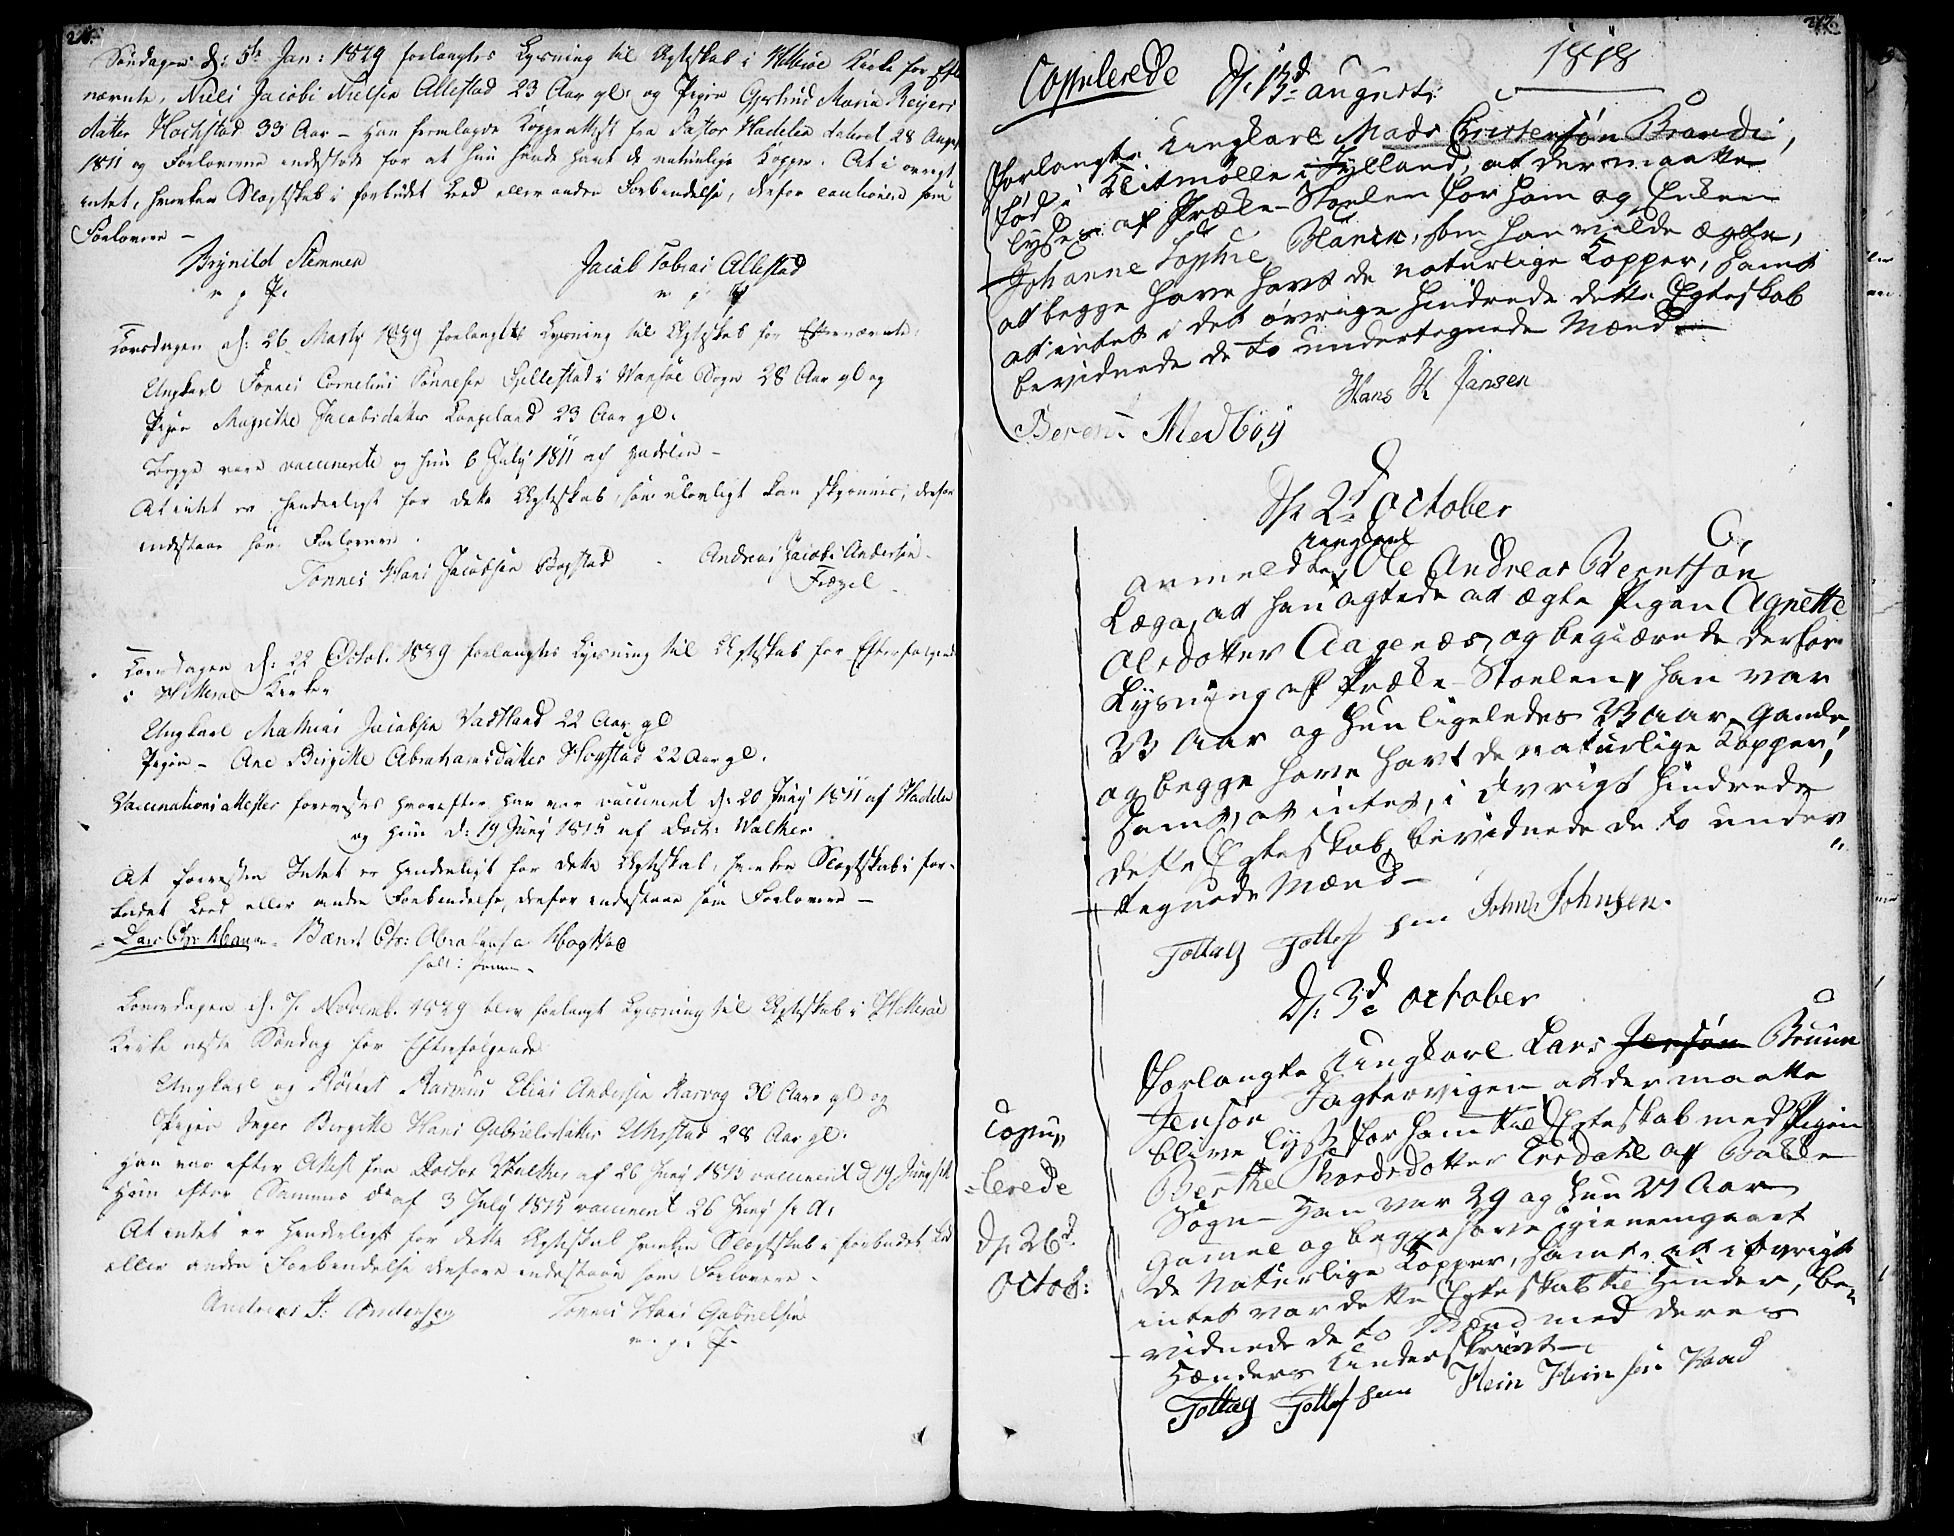 216.
Søndagen d: 5te Jan: 1829 forlangtes Lysning til Ægteskab i Hitterøe Kirke for Efter
nævnte, Niels Jacobi Nielsen Allestad 23 Aar gl: og Pigen Gjertrud Maria Reijers
datter Hochstad 33 Aar – Han fremlagde Koppeattest fra Pastor Hadelin dateret 28 Aug
1811 og Forloverne indestode for at hun havde havt de naturlige Kopper. At i øvrigt
intet, hverken Slegtskab i forbudet Leed eller anden Forbindelse, derfor cautionere som
Forlovere –
Brynild Stemmen
m p P.
Jacob Tobias Allestad
m p P
Torsdagen d: 26 Marty 1829 forlangtes Lysning til Ægteskab for Efternævnte:
Ungkarl Tønnes Cornelius Tønnesen Sellestad i Wansøe Sogn 28 Aar gl og
Pigen Magrethe Jacobsdatter Langeland 23 Aar gl.
Begge vare vaccinerte og hun 6 July 1811 af Hadelin –
At intet er hinderligt for dette Ægteskab, som ulovligt kan skjønnes; derfor
indestaae som Forlovere.
Tønnes Hans Jacobsen Bogstad - Andreas Jacobi Andersen
Tregel
Torsdagen d: 22 Octob. 1829 forlangtes Lysning til Ægteskab for Efterfølgende
i Hitterøe Kirke
Ungkarl Mathias Jacobsen Vastland 22 Aar gl
Pigen – Ane Birgitte Abrahamsdatter Hogstad 22 Aar gl.
Vaccinationsattester forevistes hvorefter han var vaccineret d: 20 Juny 1811 af Hadelin
og hun d: 19 Juny 1815 af Doct: Walker
At forresten Intet er hinderligt for dette Ægteskab, hverken Slegtskab i for-
budet Leed eller anden Forbindelse, derfor indestaae som Forlovere –
Bærnt Chr: Abrahamsen Hogstad
Løverdagen d. 7. Novemb. 1829 blev forlangt Lysning til Ægteskab i Hitterøe
Kirke næste Søndag for Efterfølgende
Ungkarl og Rasmus Elias Andersen Rasvog 30 Aar gl og
Pigen Inger Birgitte Hans Gabrielsdatter Uhrstad 28 Aar gl.
Han var efter Attest fra Doctor Walker af 26 Juny 1815 vaccineret d 19 Juny
Hun efter Sammes do af 3 July 1815 vaccineret 26 Juny s: A:
At intet er hinderligt for dette Ægteskab hverken Slegtskab i forbudet Leed
eller anden Forbindelse derfore indestaae som Forlovere.
Andreas P. Andersen
Tønnes Hans Gabrielsen
m. p. P.
217.
1818
Copulerede
D: 13d august:
Forlangte Ungkarl Mads Christensøn Brandi,
fød i Klitmølle i Jylland, at der maatte
lyses af Præke-Stoelen for ham og Enken
Johanne Sophie Blanck, som han vilde ægte,
at begge have havt de naturlige Kopper, samt
at intet i det øvrige hindrede dette Egteskab
bevidnede de to undertegnede Mænd –
Hans H Jansen
Berent Medbøy
D: 2d October
C.
ungkarl
anmeldte Ole Andreas Berntsøn
Lega, at han agtede at ægte Pigen Agnette
Olsdotter Aagenæs, og begiærede derfor
Lysning af Præke-Stoelen, han var
23 Aar og hun ligeledes 23 Aar gamle,
og begge have havt de naturlige Kopper,
samt, at intet, i Øvrigt hindrede
dette Egteskab, bevidnede de to under
tegnede Mænd –
Tollag Tollefsen John Johnsen.
D: 3d October
C
Forlangte Ungkarl Lars Jensøn Bruun
Jensøn Jagtervigen at der maatte
blive lyst for ham til Egteskab med Pigen
Berthe Thordsdotter Eresdahl af Bakke
Sogn – Han var 29 og hun 21 Aar
gamle og begge have igiennemgaaet
de Naturlige Kopper, samt at i Øvrigt
intet var dette Egteskab til Hinder, be-
vidnede de to Mænd med deres
Hænders Underskrivt –
Tollag Tollefsen Hein Heinsen Waad
Copu-
lerede
D: 26d
Octob: